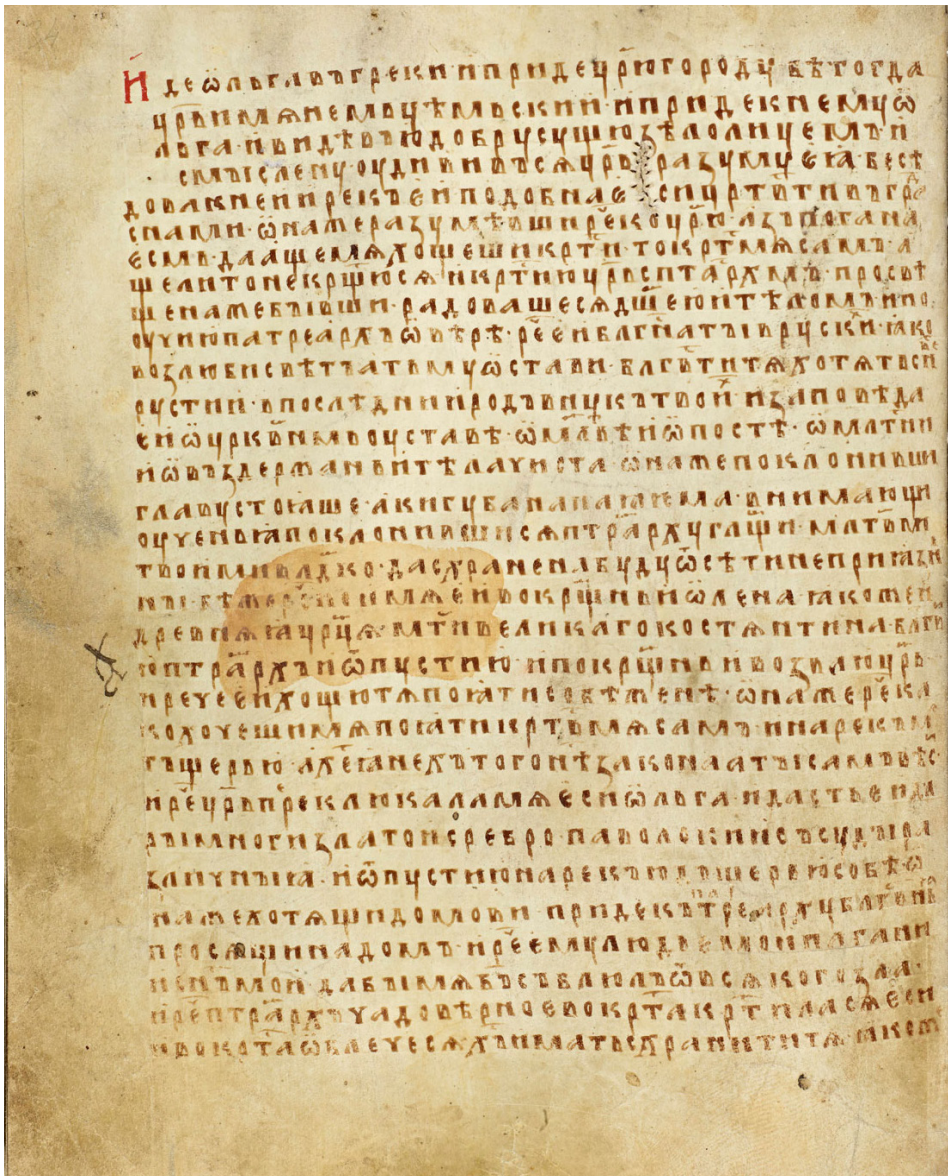 Иде ѡльга въ греки и приде цр҃югороду бѣ тогда
цр҃ь имѧнемь цѣмьскии и приде к нему ѡ
льга и видѣвъ ю добру сущю зѣло лицемъ и
смыслену оудививъсѧ цр҃ь разуму еꙗ бесѣ
дова к неи и рекъ еи подобна еси цр҃твт҃и въ гра
с нами · ѡна же разумѣвши реⷱ҇ ко цр҃ю азъ погана
есмь да аще мѧ хощеши крт҃ти · то крт҃и мѧ самъ · а
ще ли то не крщ҃юсѧ и крт҃и ю цр҃ь с птар҃хмъ · просвѣ
щена же бывши · радовашесѧ дш҃ею и тѣломъ и по
оучи ю патреархъ ѡ вѣрѣ · реⷱ҇ еи блгн҃а ты в руски · ꙗко
возлюби свѣтъ а тьму ѡстави · блгв҃ти тѧ хотѧть сн҃ве
рустии · в послѣднии родъ внукъ твои · и заповѣда
еи ѡ црквн҃мь оуставѣ · ѡ млт҃вѣ и ѡ постѣ · ѡ млт҃ни
и ѡ въздержаньи тѣла чиста · ѡна же поклонивши
главу стоꙗше · аки губа напаꙗема · внимающи
оученьꙗ · поклонившисѧ птр҃арху глщ҃и · млтв҃ми
твоими влдк҃о · да схранена буду ѿ сѣти неприꙗзнь
ны · бѣ же реⷱ҇но имѧ еи во крщ҃ньи ѡлена · ꙗкоже и
древнѧꙗ црц҃ѧ · мт҃и великаго костѧнтина · блгв҃и
ю птр҃архъ и ѿпусти ю · и по крщ҃ньи возва ю цр҃ь
и рече еи хощю тѧ поꙗти собѣ женѣ · ѡна же реⷱ҇ ка
ко хочеши мѧ поꙗти крт҃въ мѧ самъ · и нарекъ мѧ
тъщерью · а хе҃ꙗнехъ того нѣ закона а ты самъ вѣси
и реⷱ҇ цр҃ь преклюкала мѧ еси ѡльга · и дасть еи да
ры многи злато и сребро · паволоки и съсуды ра
зличныꙗ · и ѿпусти ю нарекъ ю дъщерью собѣ · ѡ
на же хотѧщи домови · приде къ птр҃еарху блгв҃ньꙗ
просѧщи на домъ · и реⷱ҇ ему людье мои пагани
и сн҃ъ мои · дабы мѧ бъ҃ съблюлъ ѿ всѧкого зла ·
и реⷱ҇ птр҃архъ чадо вѣрное · во крт҃а крт҃иласѧ еси
и во крт҃а ѡблечесѧ · хъ҃ имать схранити тѧ · ꙗкож